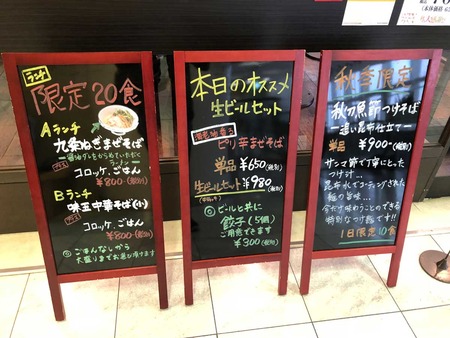 ランチ
限定20食
Aランチ
九条ねぎまぜそば
ー醤油ダレをからめていただく
ラーメンー
プラス
コロッケ、ごはん
¥800-(税別)
Bランチ
味玉中華そば(小)
プラス
コロッケ、ごはん
¥800-(税別)
◎ごはんなしから
大盛りまでお選び頂けます
本日のオススメ
生ビールセット
ピリ辛まぜそば
単品 ¥650(税別)
生ビールセット ¥980
(税別)
◎ビールと共に
餃子(5個)
ご用意できます
¥300(税別)
秋季限定
秋刀魚節つけそば
ー追い昆布仕立てー
単品 ¥900-(税別)
サンマ節で丁寧にとった
つけ汁…
昆布水でコーティングされた
麺の旨味…
今だけ味わうことのできる
特別なつけ麺です!!
1日限定10食